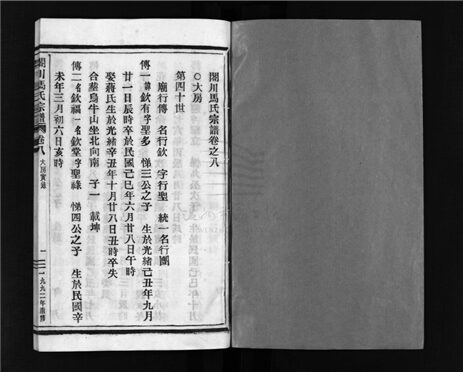 閣川馬氏宗譜卷之八
○大房
第四十世
廟行傳 名行欽 字行聖 統一名行團
傳一諱欽有字聖多 悌三公之子 生於光緒己丑年九月
廿一日辰時卒於民國己巳年六月廿八日午時
娶蔣氏生於光緒辛丑年十月廿八日丑時卒失
合葬烏牛山坐北向南 子一 載坤
傳二名欽福一名欽堂字聖祿 悌四公之子 生於民國辛
未年三月初六日亥時
閣川馬氏宗譜 卷八 大房實錄 一 一九九二年重修